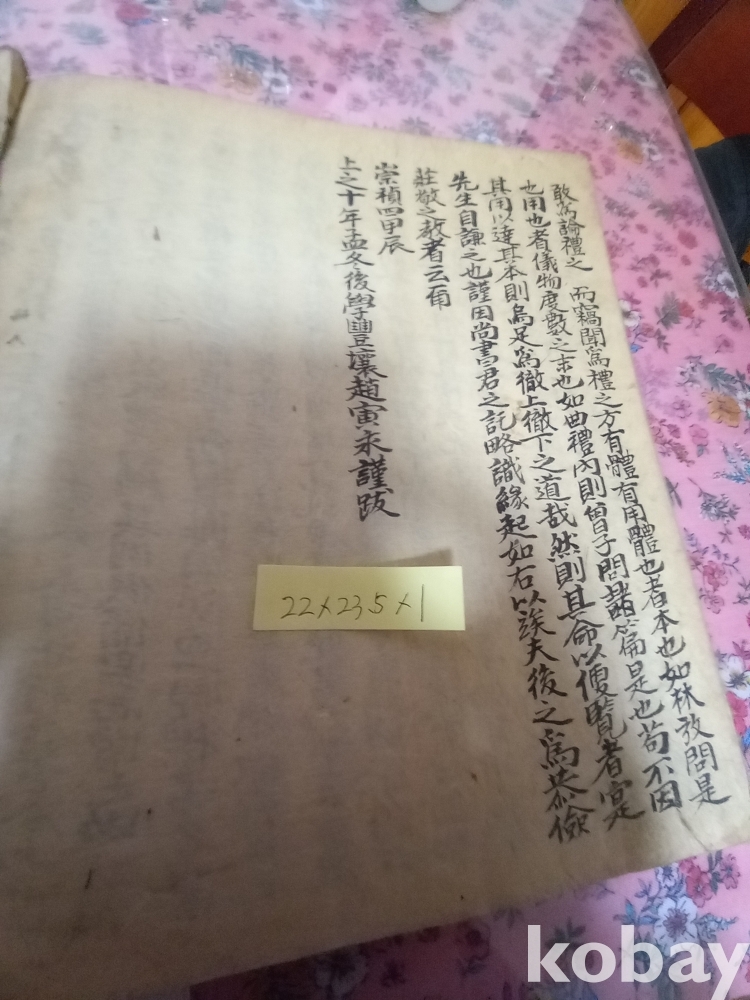 敢爲論禮之 而竊聞爲禮之方有體有用體也者本也如林放問是
也用也者儀物度數之末也如曲禮內則曾子問諸篇是也苟不因
其用以達其本則烏足爲徹上徹下之道哉然則其命以便覽者寔
先生自謙之也謹因尚書君之託略識緣起如右以俟夫後之爲恭儉
莊敬之敎者云爾
崇禎四甲辰
上之十年孟冬後學豐壤趙寅永謹跋
22×23.5×1
kobay